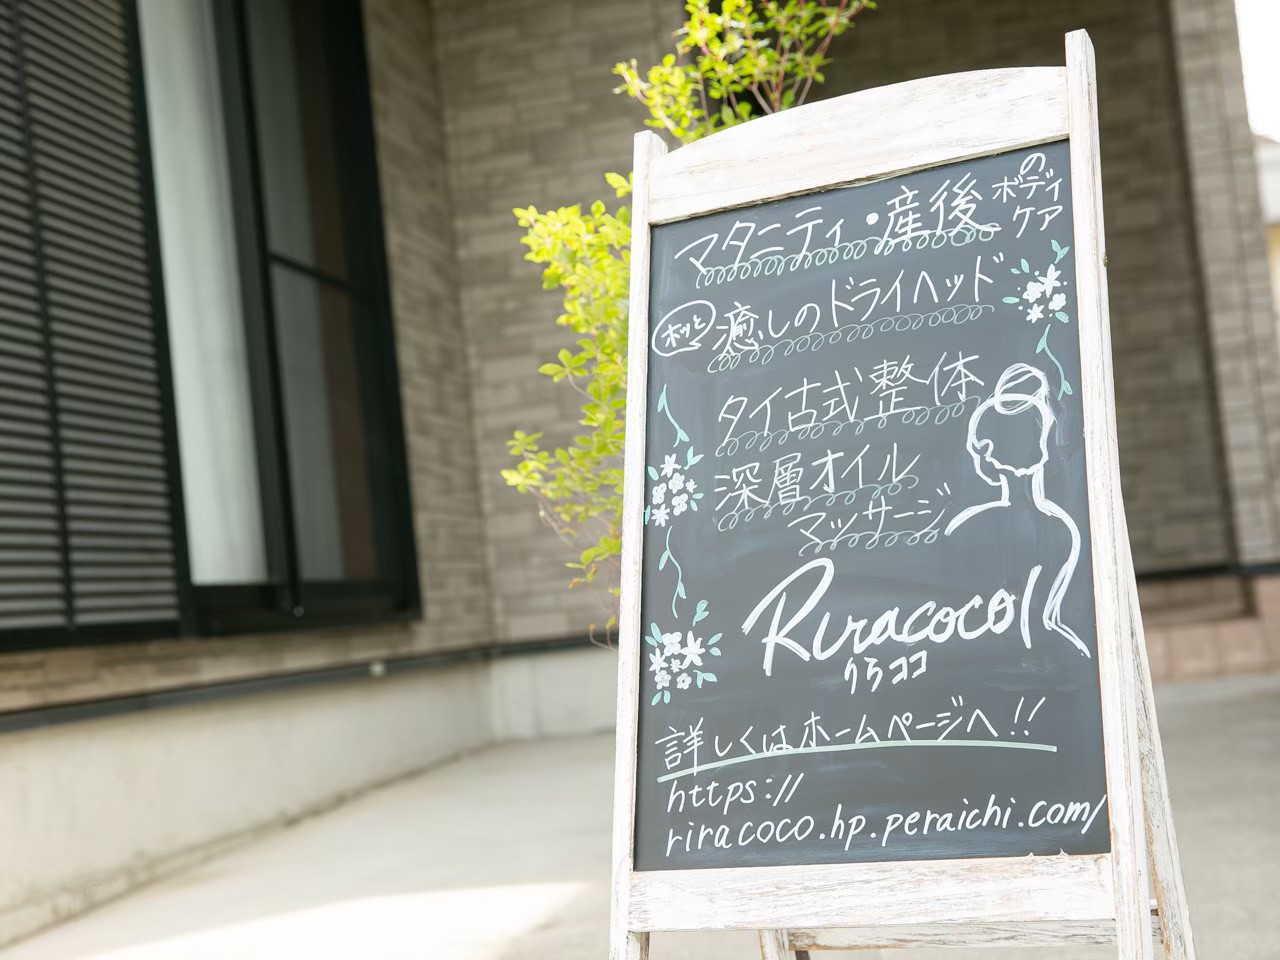 マタニティ・産後のボディケア
ホッと 癒しのドライヘッド
タイ古式整体
深層オイル
マッサージ
Riracoco
りらココ
詳しくはホームページへ!!
https://
riracoco.hp.peraichi.com/